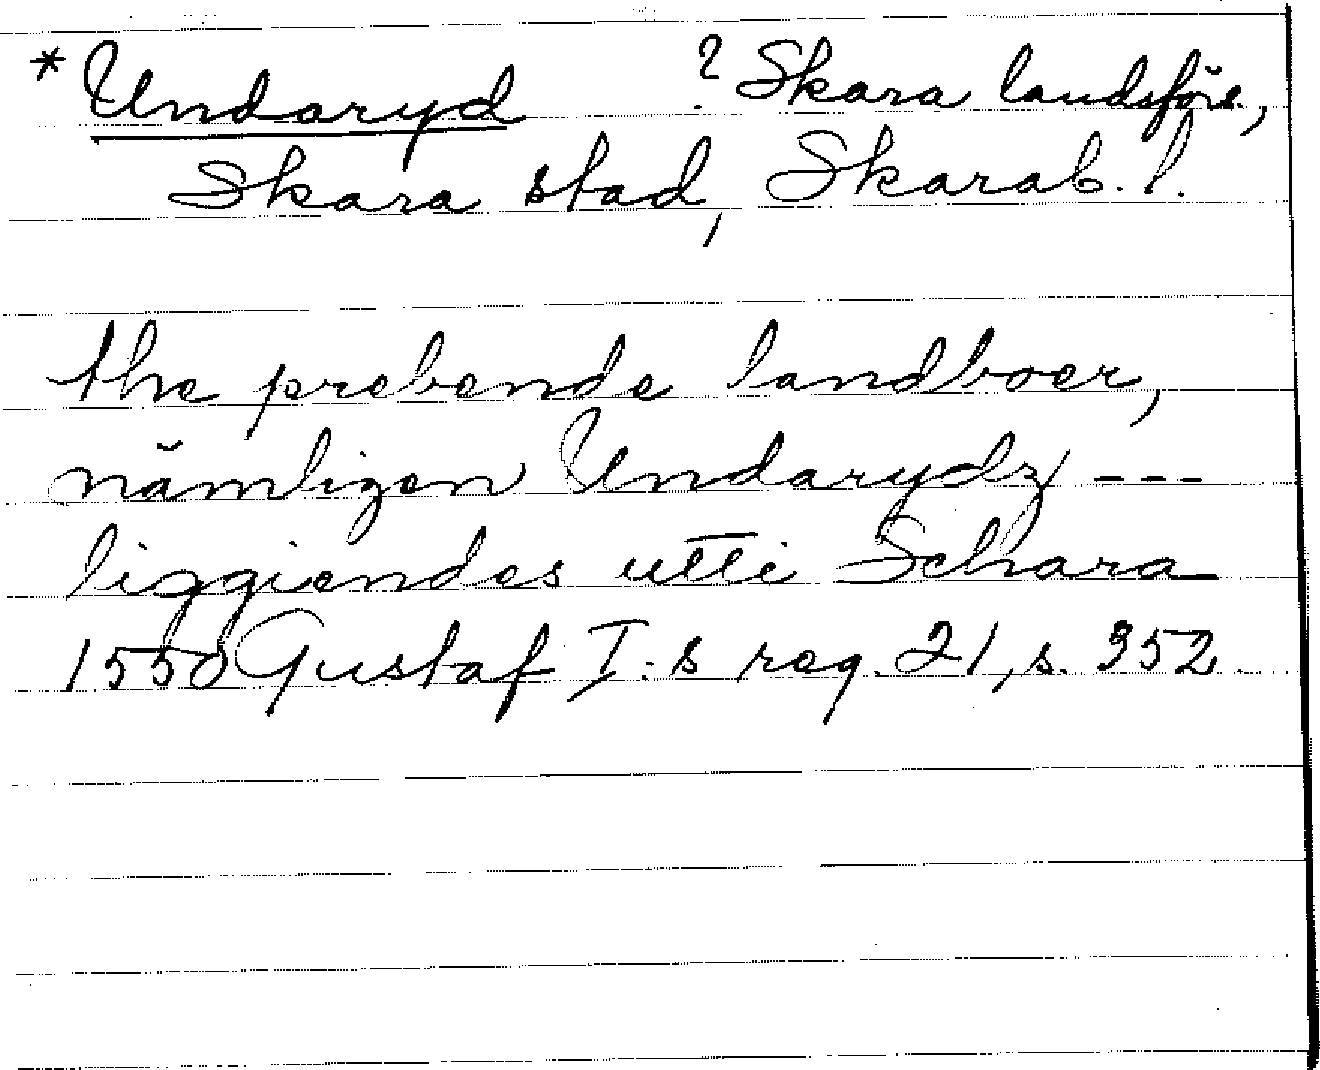 * Undaryd ? Skara landsförs.,
Skara stad, Skarab. l.
the prebende landboer,
nämligen Undarydz ---
liggiendes utti Schara
1550 Gustaf I:s reg. 21, s. 352.